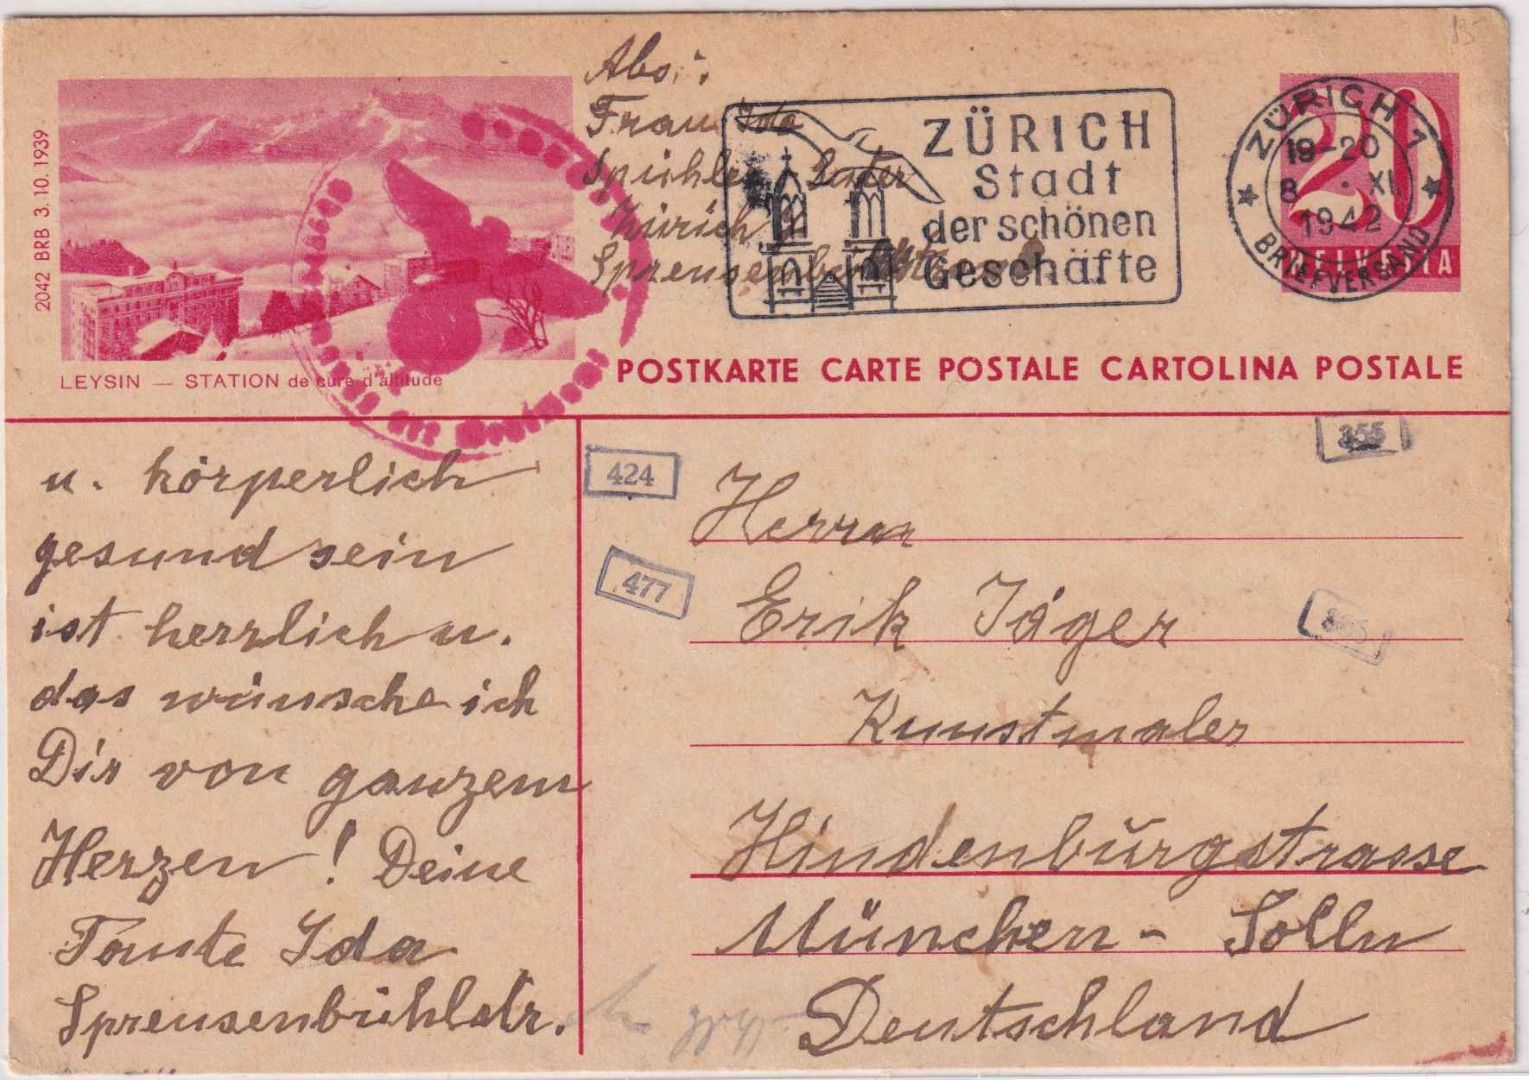 2042 BRB 3.10.1939
LEYSIN — STATION de cure d'altitude
Abs.:
Frau Ida
Zürich
ZÜRICH
Stadt
der schönen
Geschäfte
ZÜRICH 1
19-20
8. XI
1942
BRIEFVERSAND
20
HELVETIA
POSTKARTE CARTE POSTALE CARTOLINA POSTALE
u. körperlich
gesund sein
ist herrlich u.
das wünsche ich
Dir von ganzem
Herzen! Deine
Tante Ida
Spreusenbühlstr.
424
355
477
Herrn
Erik Jäger
Kunstmaler
Hindenburgstrasse
München - Solln
Deutschland